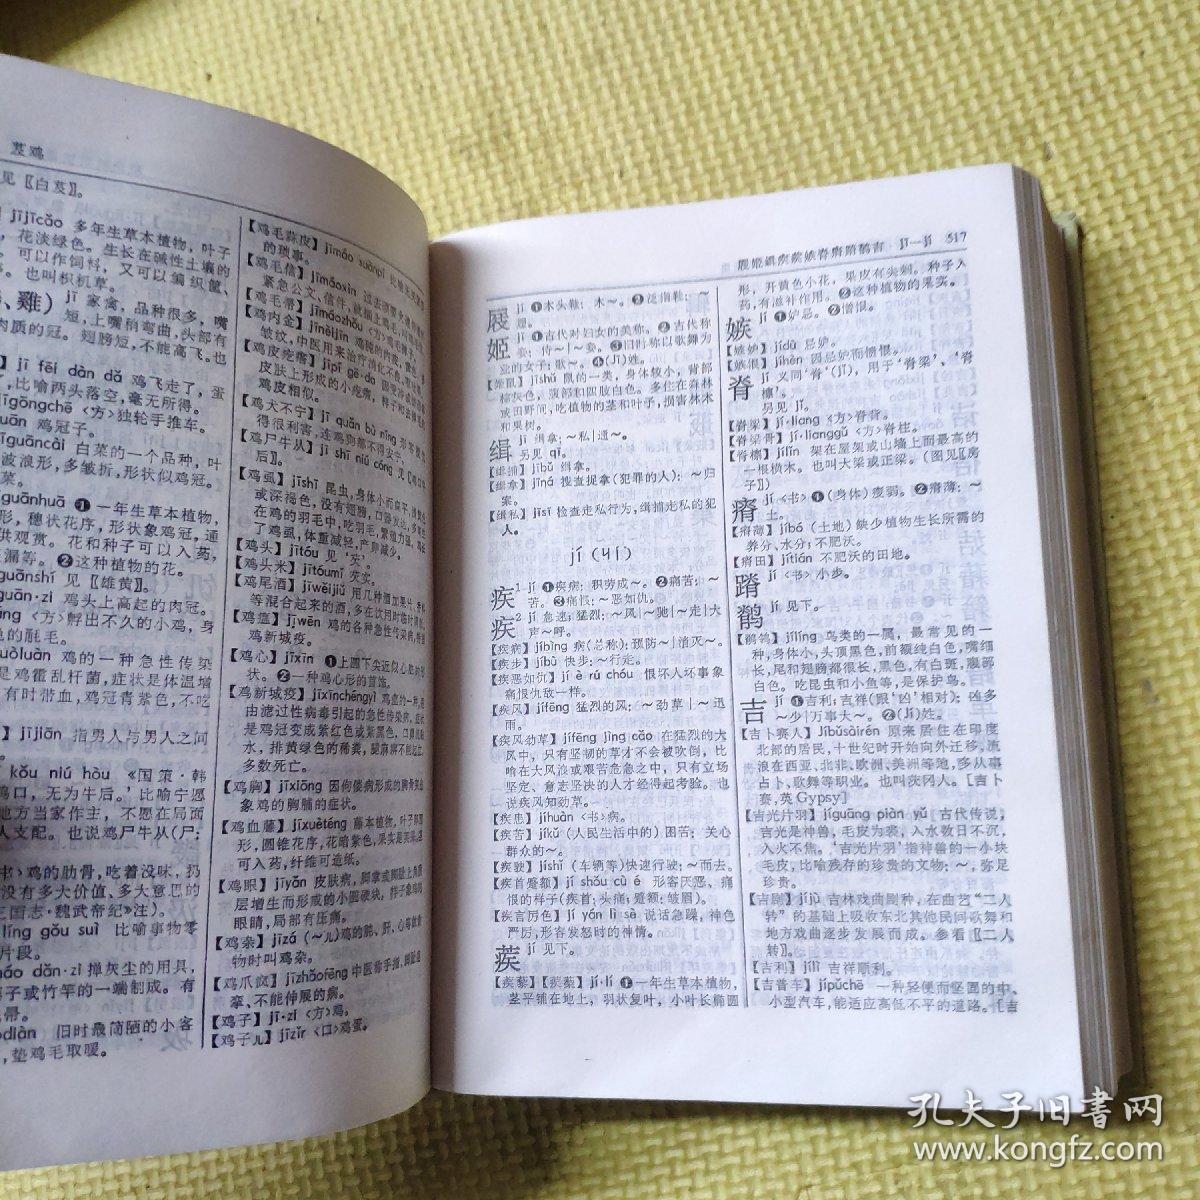 芨鸡
见〖白芨〗。
jījīcǎo 多年生草本植物，叶子
，花淡绿色。生长在碱性土壤的
可以作饲料，又可以编织筐、
也叫枳机草。
、雞） jī 家禽，品种很多，嘴
短，上嘴稍弯曲，头部有
肉质的冠。翅膀短，不能高飞。也
jī fēi dàn dǎ 鸡飞走了，蛋
，比喻两头落空，毫无所得。
īgōngchē〈方〉独轮手推车。
uān 鸡冠子。
īguāncài 白菜的一个品种，叶
波浪形，多皱折，形状似鸡冠。
菜。
īguānhuā ❶一年生草本植物，
形，穗状花序，形状象鸡冠，通
供观赏。花和种子可以入药，
漏等。❷这种植物的花。
īguānshí 见〖雄黄〗。
īguān·zi 鸡头上高起的肉冠。
〈方〉孵出不久的小鸡，身
色的毷毛。
uòluàn 鸡的一种急性传染
是鸡霍乱杆菌，症状是体温增
有时带血，鸡冠青紫色，不吃
】jījiān 指男人与男人之间
kǒu niú hòu 《国策·韩
鸡口，无为牛后。’比喻宁愿
地方当家作主，不愿在局面
人支配。也说鸡尸牛从（尸：
书〉鸡的肋骨，吃着没味，扔
没有多大价值、多大意思的
三国志·魏武帝纪》注）。
líng gǒu suì 比喻事物零
片段。
máo dǎn·zi 掸灰尘的用具，
藤子或竹竿的一端制成。有
帚。
odiàn 旧时最简陋的小客
，垫鸡毛取暖。
【鸡毛蒜皮】jīmáo suànpí
的琐事。
【鸡毛信】jīmáoxìn
【鸡毛帚】jīmáozhǒu〈方〉鸡毛掸子。
【鸡内金】jīnèijīn
皱纹，中医用来治疗消化不良
【鸡皮疙瘩】jīpí gē·da
皮肤上形成的小疙瘩，
鸡皮相似。
【鸡犬不宁】jī quǎn bù níng
得很利害，连鸡狗都不得安宁。
【鸡尸牛从】jī shī niú cóng
后〗。
【鸡虱】jīshī 昆虫，身体小而扁平
或深褐色，没有翅膀，
在鸡的羽毛中，吃羽毛，
了鸡虱，体重减轻，产卵减少。
【鸡头】jītóu 见‘芡’。
【鸡头米】jītóumǐ 芡实。
【鸡尾酒】jīwěijiǔ 用几种酒加果汁、
等混合起来的酒，多在饮用时临时
【鸡瘟】jīwēn 鸡的各种急性传染病，
鸡新城疫。
【鸡心】jīxīn ❶上圆下尖近似心脏的
状。❷一种鸡心形的首饰。
【鸡新城疫】jīxīnchéngyì 鸡瘟的一种，
由滤过性病毒引起的急性传染病，症状
是鸡冠变成紫红色或紫黑色，口鼻
水，排黄绿色的稀粪，腿麻痹不能
多数死亡。
【鸡胸】jīxiōng 因佝偻病形成的胸骨突出
象鸡的胸脯的症状。
【鸡血藤】jīxuèténg 藤本植物，叶子卵圆
形，圆锥花序，花暗紫色，果实是荚果
可入药，纤维可造纸。
【鸡眼】jīyǎn 皮肤病，脚掌或脚趾上角质
层增生而形成的小圆硬块，样子象鸡的
眼睛，局部有压痛。
【鸡杂】jīzá（～儿）鸡的肫、肝、心等做食
物时叫鸡杂。
【鸡爪疯】jīzhǎofēng 中医称手指、脚趾
挛，不能伸展的病。
【鸡子】jī·zi〈方〉鸡。
【鸡子儿】jīzǐr〈口〉鸡蛋。
屐姬缉疾蒺嫉脊瘠踖鹡吉 jī—jí 517
屐 jī ❶木头鞋：木～。❷泛指鞋：～
履。
姬 jī ❶古代对妇女的美称。❷古代称
妾：侍～｜～妾。❸旧时称以歌舞为
业的女子：歌～。❹(Jī)姓。
【姬鼠】jīshǔ 鼠的一类，身体较小，背部
棕灰色，腹部和四肢白色。多住在森林
或田野间，吃植物的茎和叶子，损害林木
和果树。
缉 jī 缉拿：～私｜通～。
另见 qī。
【缉捕】jībǔ 缉拿。
【缉拿】jīná 搜查捉拿（犯罪的人）：～归
案。
【缉私】jīsī 检查走私行为，缉捕走私的犯
人。
jí（ㄐㄧˊ）
疾¹ jí ❶疾病：积劳成～。❷痛苦：～
苦。❸痛恨：～恶如仇。
疾² jí 急速；猛烈：～风｜～驰｜～走｜大
声～呼。
【疾病】jíbìng 病（总称）：预防～｜消灭～。
【疾步】jíbù 快步：～行走。
【疾恶如仇】jí è rú chóu 恨坏人坏事象
痛恨仇敌一样。
【疾风】jífēng 猛烈的风：～劲草｜～迅
雨。
【疾风劲草】jífēng jìng cǎo 在猛烈的大
风中，只有坚韧的草才不会被吹倒，比
喻在大风浪或艰苦危急之中，只有立场
坚定、意志坚决的人才经得起考验。也
说疾风知劲草。
【疾患】jíhuàn〈书〉病。
【疾苦】jíkǔ（人民生活中的）困苦：关心
群众的～。
【疾驶】jíshǐ（车辆等）快速行驶：～而去。
【疾首蹙额】jí shǒu cù é 形容厌恶、痛
恨的样子（疾首：头痛；蹙额：皱眉）。
【疾言厉色】jí yán lì sè 说话急躁，神色
严厉，形容发怒时的神情。
蒺 jí 见下。
【蒺藜】（蒺蔾）jí·lí ❶一年生草本植物，
茎平铺在地上，羽状复叶，小叶长椭圆
形，开黄色小花，果皮有尖刺。种子入
药，有滋补作用。❷这种植物的果实。
嫉 jí ❶妒忌。❷憎恨。
【嫉妒】jídù 忌妒。
【嫉恨】jíhèn 因忌妒而愤恨。
脊 jí 义同‘脊’(jǐ)，用于‘脊梁’、‘脊
檩’。
另见 jǐ。
【脊梁】jí·liang〈方〉脊背。
【脊梁骨】jí·lianggǔ〈方〉脊柱。
【脊檩】jílǐn 架在屋架或山墙上面最高的
一根横木。也叫大梁或正梁。（图见〖房
子〗）
瘠 jí〈书〉❶（身体）瘦弱。❷瘠薄：～
土。
【瘠薄】jíbó（土地）缺少植物生长所需的
养分、水分；不肥沃。
【瘠田】jítián 不肥沃的田地。
踖 jí〈书〉小步。
鹡 jí 见下。
【鹡鸰】jílíng 鸟类的一属，最常见的一
种，身体小，头顶黑色，前额纯白色，嘴细
长，尾和翅膀都很长，黑色，有白斑，腹部
白色。吃昆虫和小鱼等，是保护鸟。
吉 jí ❶吉利；吉祥（跟‘凶’相对）：凶多
～少｜万事大～。❷(Jí)姓。
【吉卜赛人】Jíbǔsàirén 原来居住在印度
北部的居民，十世纪时开始向外迁移，流
浪在西亚、北非、欧洲、美洲等地，多从事
占卜、歌舞等职业。也叫茨冈人。[吉卜
赛，英 Gypsy]
【吉光片羽】jíguāng piàn yǔ 古代传说，
吉光是神兽，毛皮为裘，入水数日不沉，
入火不焦。‘吉光片羽’指神兽的一小块
毛皮，比喻残存的珍贵的文物：～，弥足
珍贵。
【吉剧】jíjù 吉林戏曲剧种，在曲艺“二人
转”的基础上吸收东北其他民间歌舞和
地方戏曲逐步发展而成。参看〖二人
转〗。
【吉利】jílì 吉祥顺利。
【吉普车】jípǔchē 一种轻便而坚固的中、
小型汽车，能适应高低不平的道路。[吉
孔夫子旧书网
www.kongfz.com